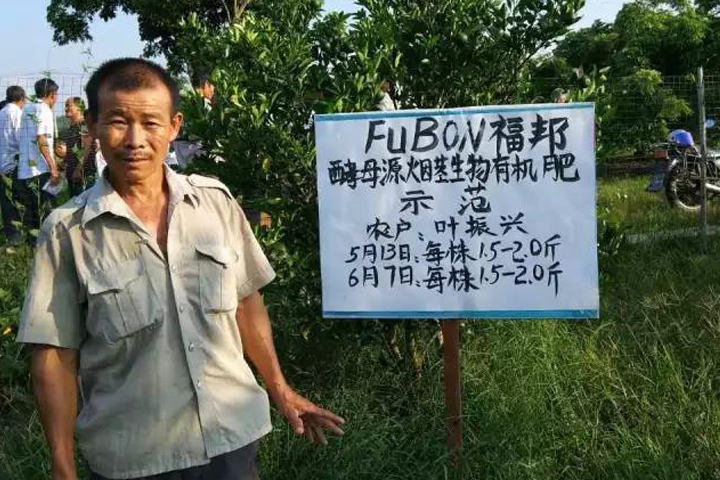 FuBON福邦
酵母源烟茎生物有机肥
示范
农户:叶振兴
5月13日:每株1.5-2.0斤
6月7日:每株1.5-2.0斤